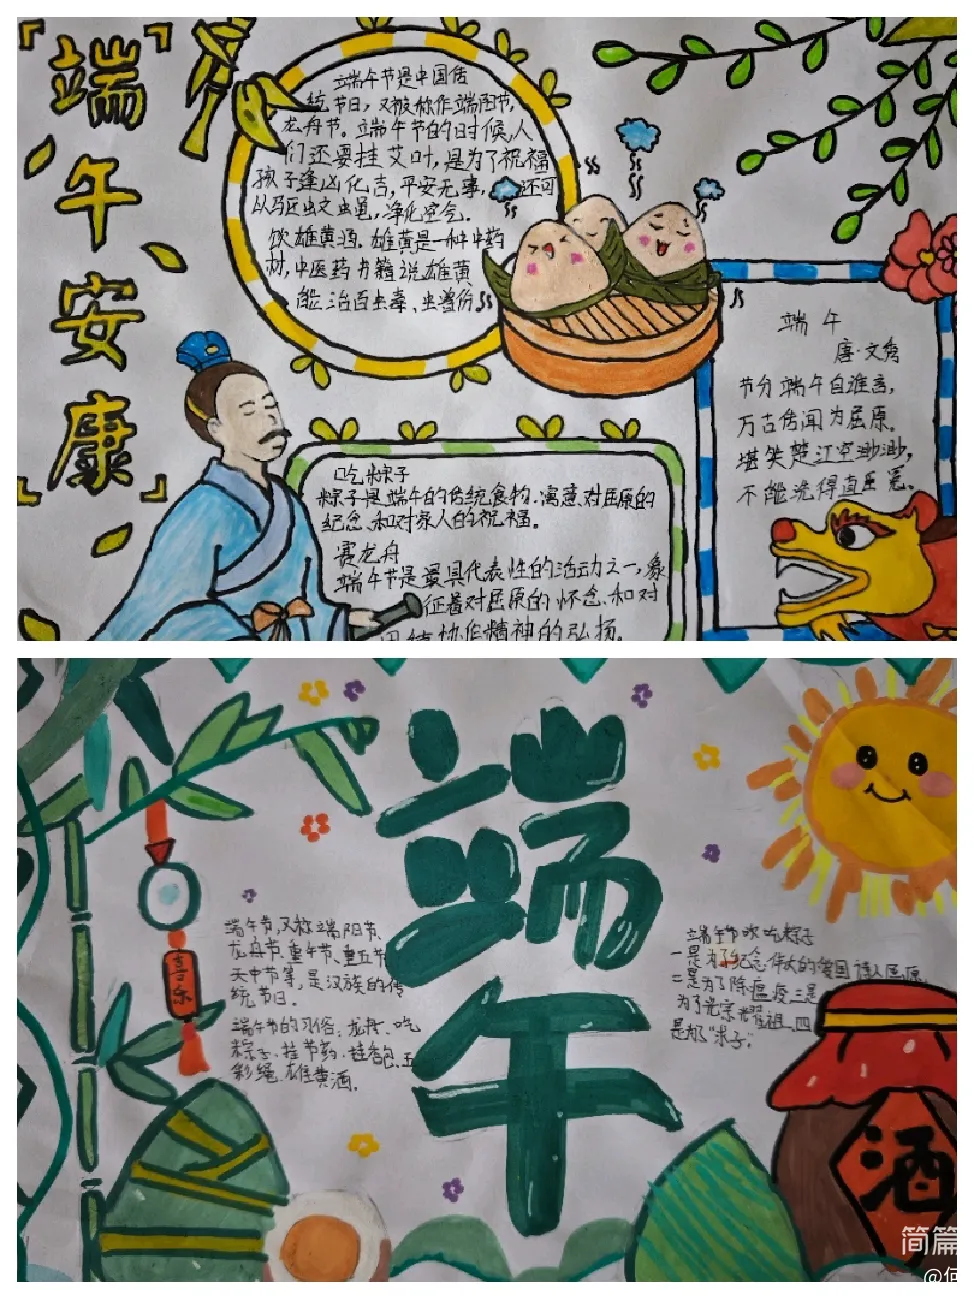 『端午安康』
端午节是中国传
统节日，又被称作端阳节，
龙舟节。端午节的时候，人
们还要挂艾叶，是为了祝福
孩子逢凶化吉，平安无事，还可
以驱蚊虫蝇，净化空气。
饮雄黄酒。雄黄是一种中药
材，中医药书籍说雄黄
能治百虫毒、虫兽伤
端午
唐·文秀
节分端午自谁言，
万古传闻为屈原。
堪笑楚江空渺渺，
不能洗得直臣冤。
吃粽子
粽子是端午的传统食物，寓意对屈原的
纪念、和对家人的祝福。
赛龙舟
端午节是最具代表性的活动之一，象
征着对屈原的怀念、和对
团结协作精神的弘扬。
端午
端午节，又称端阳节、
龙舟节、重午节、重五节
天中节等，是汉族的传
统节日。
端午节的习俗：龙舟、吃
粽子、挂
香包、五
彩绳、雄黄酒。
喜乐
端午节吃粽子
一是为了纪念伟大的爱国诗人屈原
二是为了除瘟疫三是
为了光宗耀祖、四
是
酒
简篇